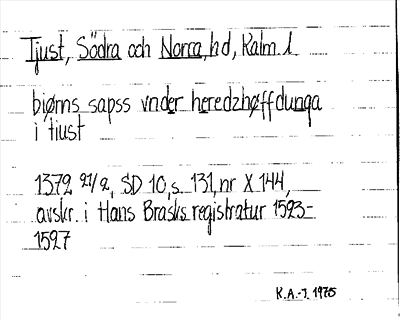 Tjust, Södra och Norra, hd, Kalm. l.
biørns sapss vnder heredzhøffdunga
i tiust
1379 21/2, SD 10, s. 131, nr X 144,
avskr. i Hans Brasks registratur 1523-
1527
K.A.-J. 1975